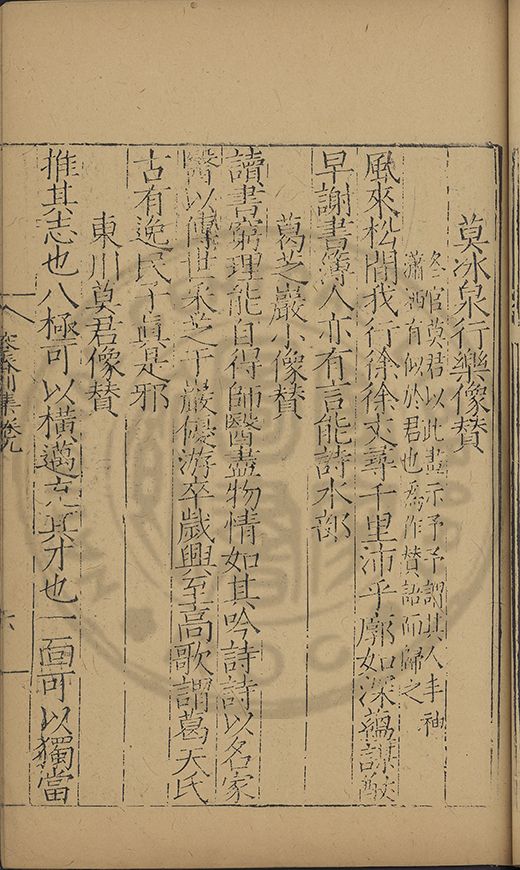 莫冰泉行樂像賛
冬官莫君以此畫示予予謂其人丰袖
瀟洒自似於君也為作賛語而歸之
風來松間我行徐徐丈尋千里沛乎廓如深藹謀猷
早謝書簿人亦有言能詩水部
葛芝巖小像賛
讀書窮理能自得師醫盡物情如其吟詩詩以名家
醫以傳世采芝于巖優游卒歲興至高歌謂葛天氏
古有逸民子真是邪
東川莫君像賛
推其志也八極可以橫邁充其才也一面可以獨當
集卷九
六